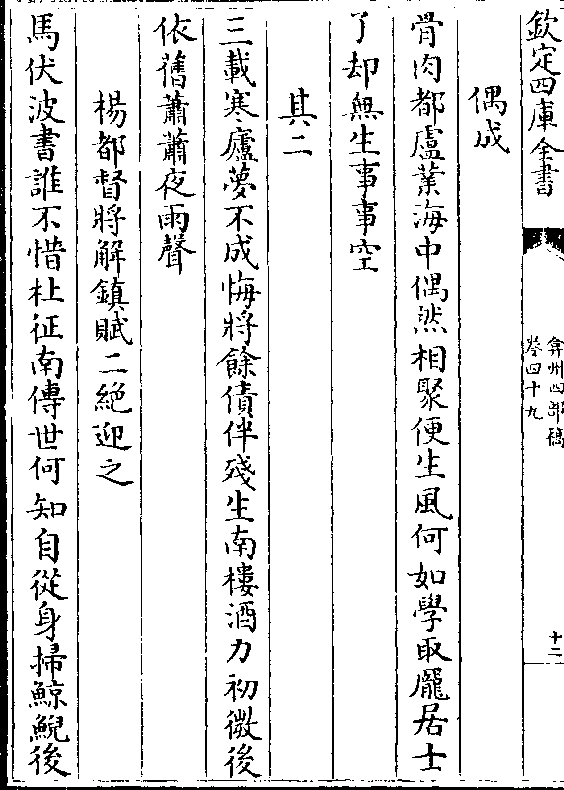 欽定四庫全書
弇州四部稿
卷四十九
十二
偶成
骨肉都盧業海中偶然相聚便生風何如學取龎居士
了却無生事事空
其二
三載寒廬夢不成悔將餘債伴殘生南樓酒力初微後
依舊蕭蕭夜雨聲
楊都督將解鎮賦二絶迎之
馬伏波書誰不惜杜征南傳世何知自從身掃鯨鯢後